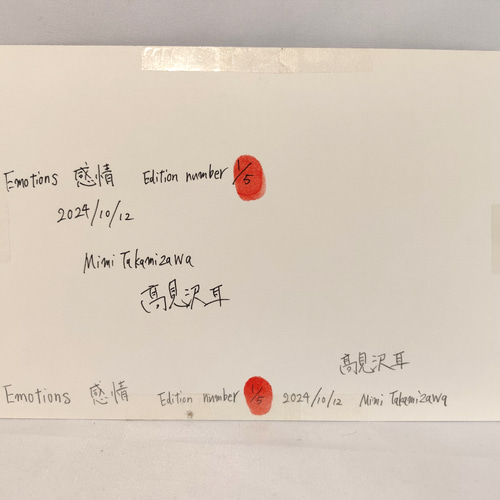 Emotions 感情 Edition number 1/5
2024/10/12
Mimi Takamizawa
髙見沢耳
髙見沢耳
Emotions 感情 Edition number 1/5 2024/10/12 Mimi Takamizawa